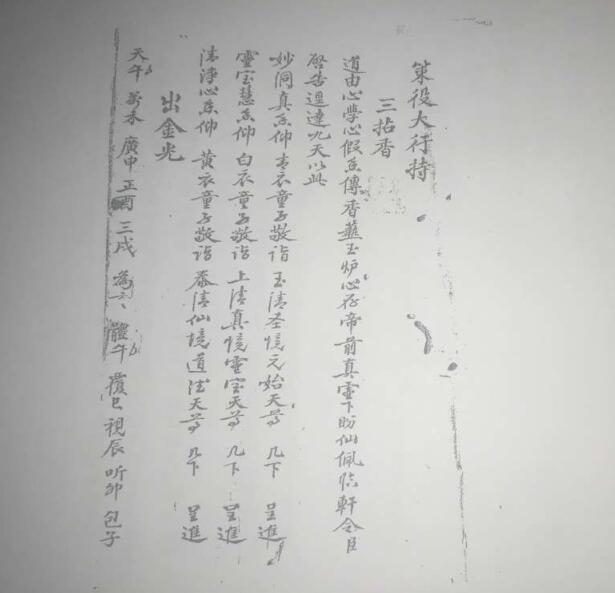 策役大行持
三拈香
道由心學心假香傳香爇玉炉心存帝前真靈下盼仙佩临軒令臣
啓告逕達九天以此
妙洞真香仰青衣童子敬诣玉清圣境元始天尊几下 呈進
靈宝慧香仰白衣童子敬诣上清真境靈宝天尊几下 呈進
清淨心香仰黄衣童子敬诣泰清仙境道德天尊几下 呈進
出金光
天午 蓋未 廣申 正酉 三戌 為 體午 覆巳 視辰 听卯 包子